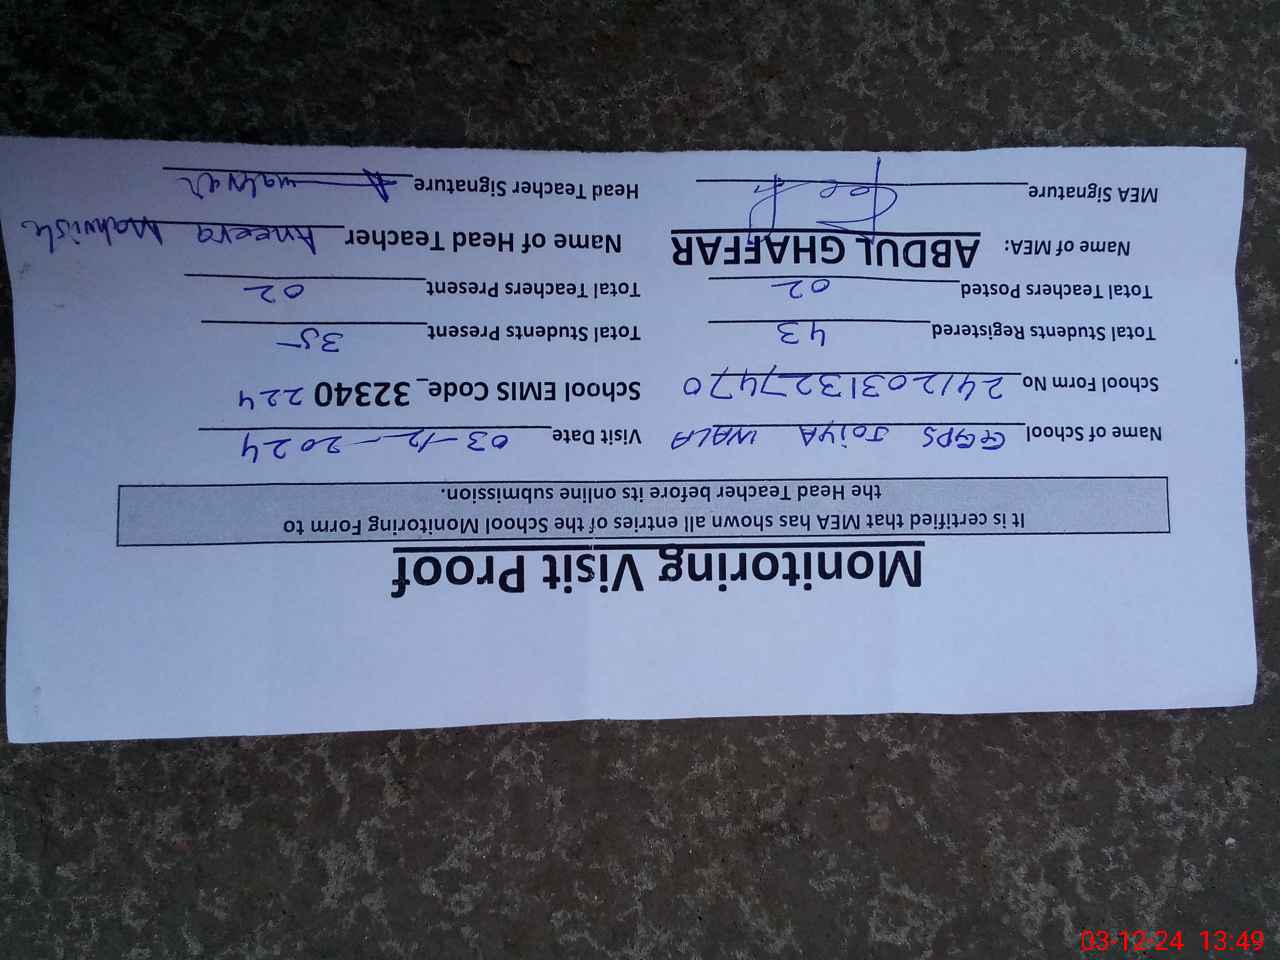 Monitoring Visit Proof
It is certified that MEA has shown all entries of the School Monitoring Form to
the Head Teacher before its online submission.
Name of School GGPS JOIYA WALA Visit Date 03-12-2024
School Form No 241203132 27470 School EMIS Code_ 32340 224
Total Students Registered 43 Total Students Present 35
Total Teachers Posted 02 Total Teachers Present 02
Name of MEA: ABDUL GHAFFAR Name of Head Teacher Aneera Mahvish
MEA Signature Head Teacher Signature
03-12-24 13:49